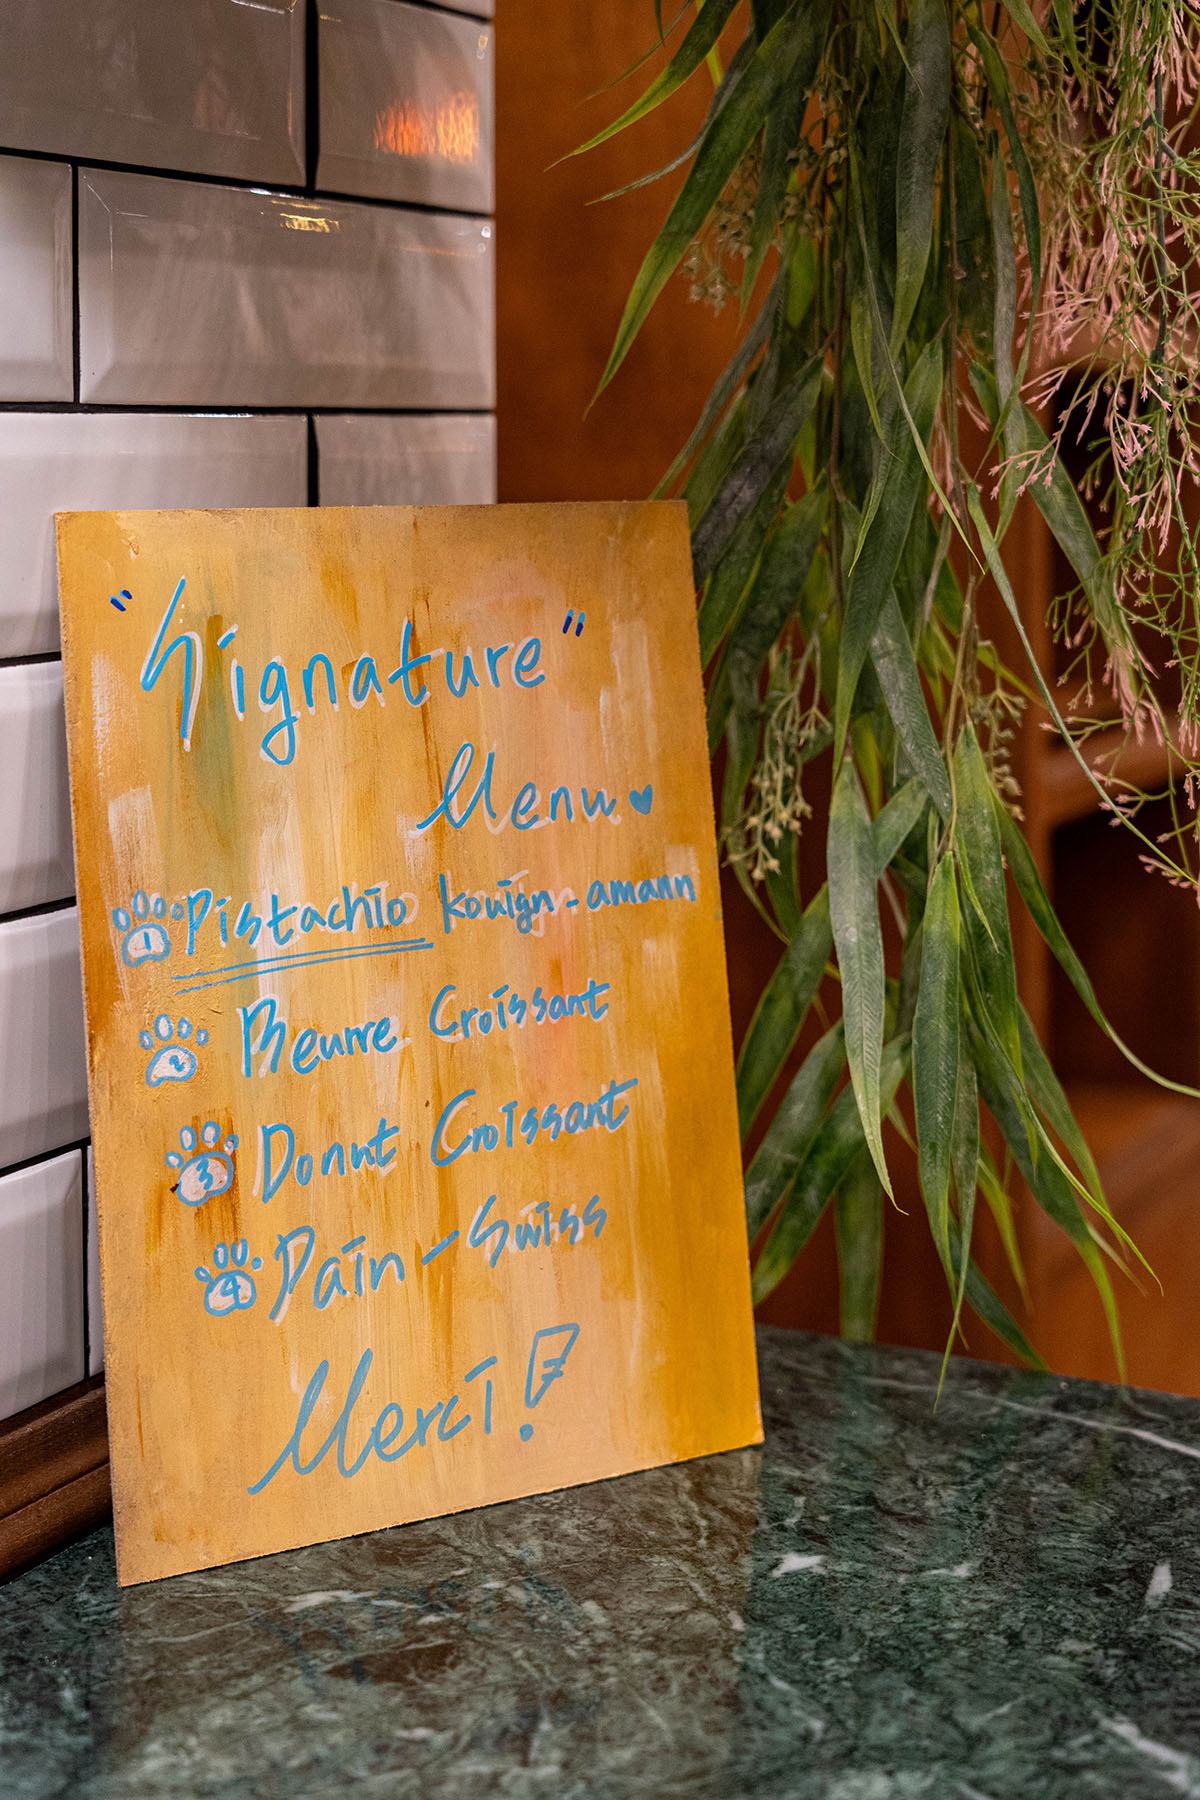 "Signature"
Menu ♥
1 Pistachio kouign-amann
2 Beurre Croissant
3 Donut Croissant
4 Pain-Swiss
Merci!